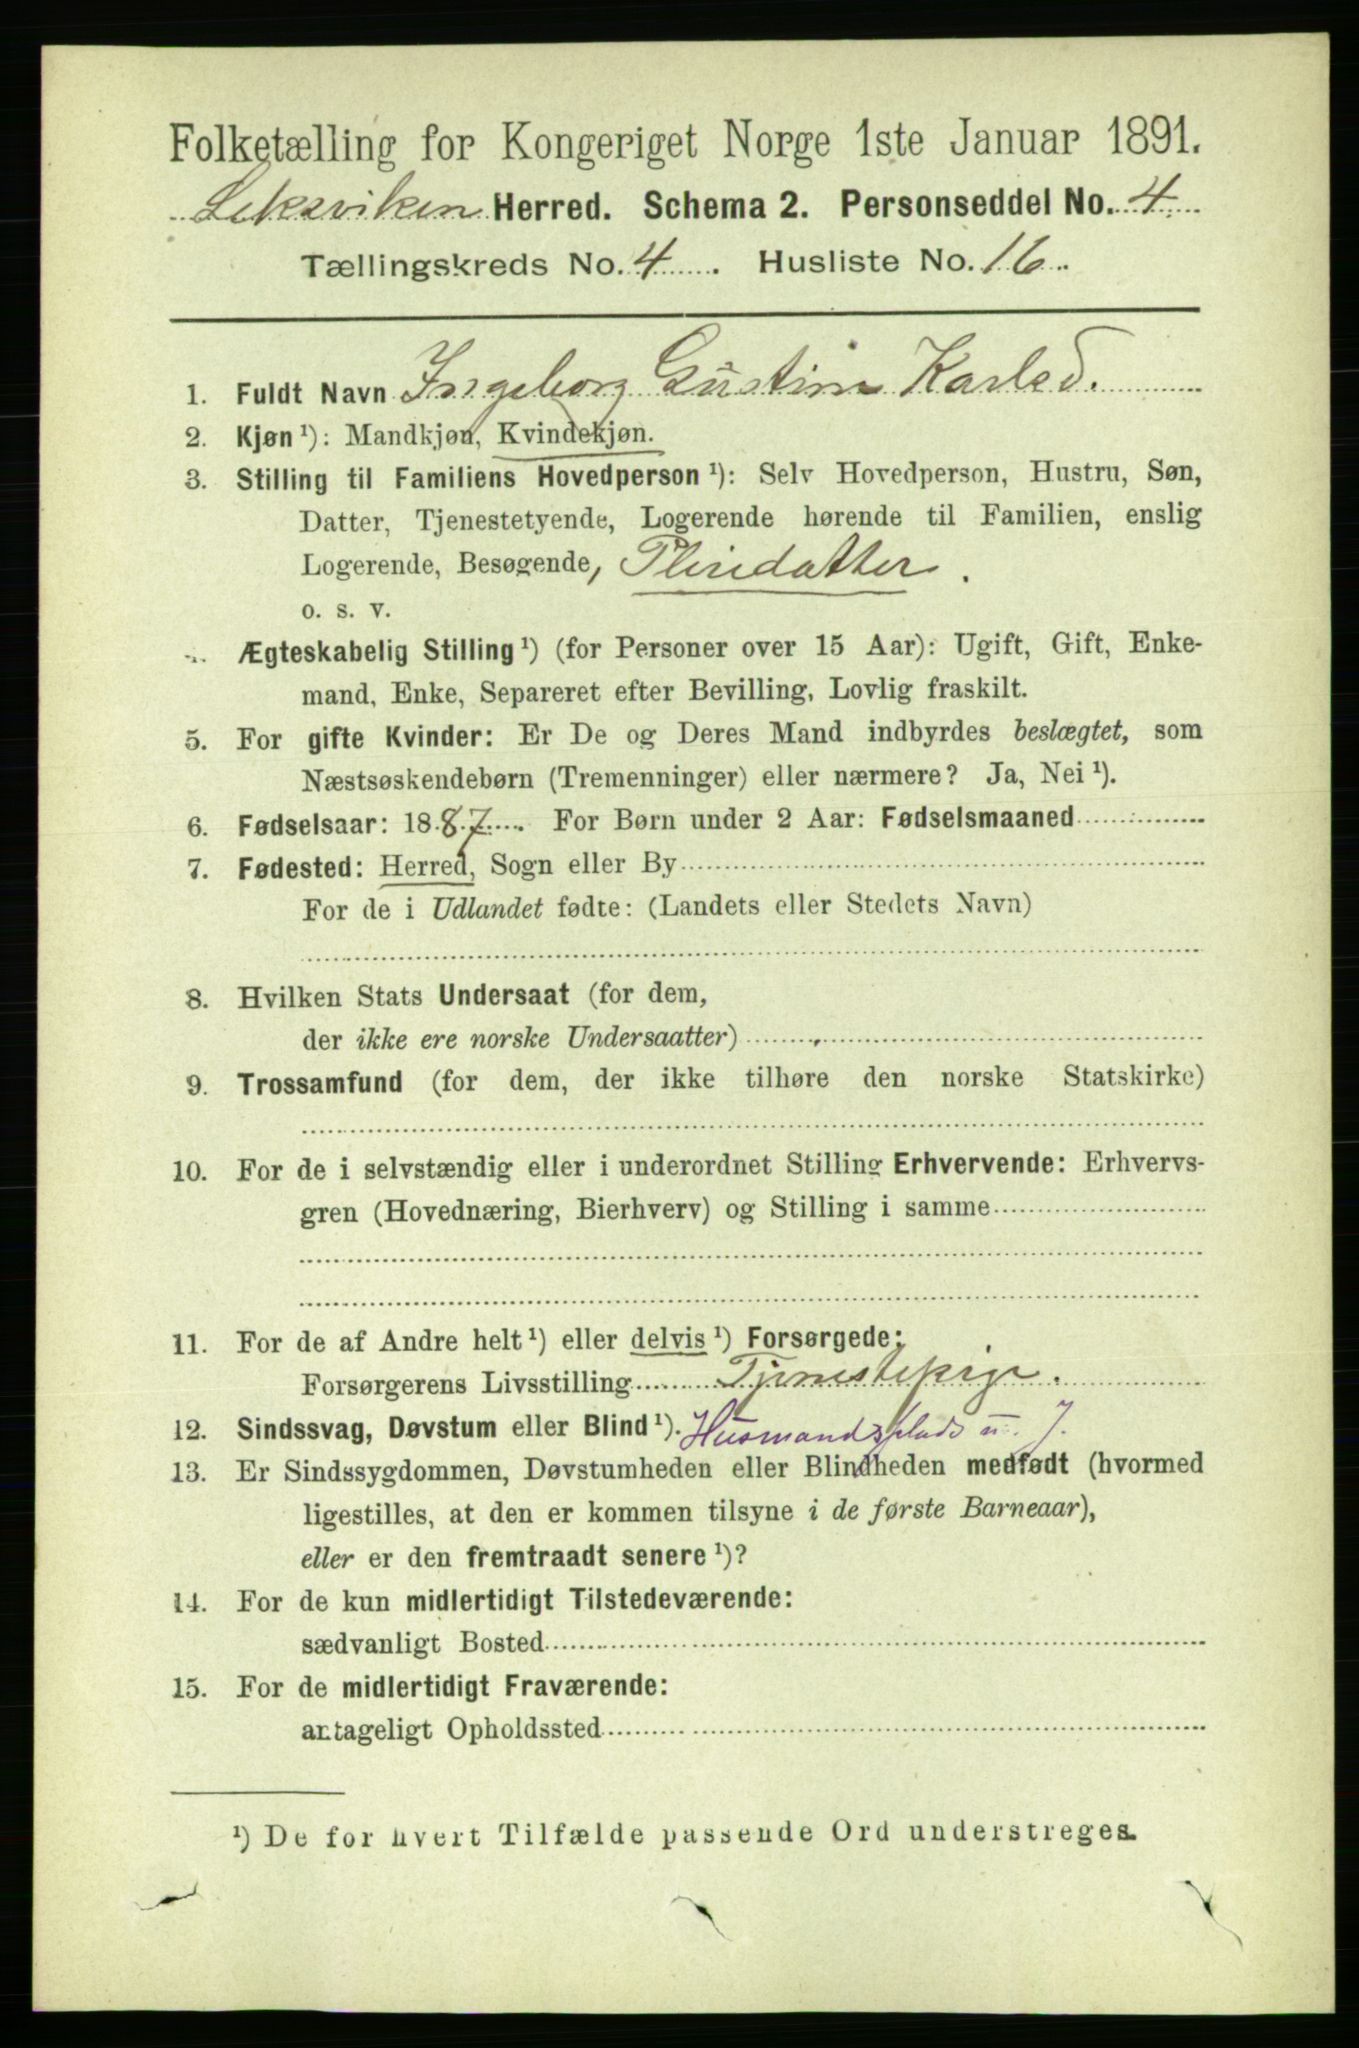 Folketælling for Kongeriget Norge 1ste Januar 1891.
Leksviken Herred. Schema 2. Personseddel No. 4
Tællingskreds No. 4. Husliste No. 16.
1. Fuldt Navn Ingeborg Gustine Karlsd.
2. Kjøn¹): Mandkjøn, Kvindekjøn.
3. Stilling til Familiens Hovedperson¹): Selv Hovedperson, Hustru, Søn,
Datter, Tjenestetyende, Logerende hørende til Familien, enslig
Logerende, Besøgende, Pleiedatter.
o. s. v.
Ægteskabelig Stilling¹) (for Personer over 15 Aar): Ugift, Gift, Enke-
mand, Enke, Separeret efter Bevilling, Lovlig fraskilt.
5. For gifte Kvinder: Er De og Deres Mand indbyrdes beslægtet, som
Næstsøskendebørn (Tremenninger) eller nærmere? Ja, Nei¹).
6. Fødselsaar: 1887. For Børn under 2 Aar: Fødselsmaaned
7. Fødested: Herred, Sogn eller By
For de i Udlandet fødte: (Landets eller Stedets Navn)
8. Hvilken Stats Undersaat (for dem,
der ikke ere norske Undersaatter)
9. Trossamfund (for dem, der ikke tilhøre den norske Statskirke)
10. For de i selvstændig eller i underordnet Stilling Erhvervende: Erhvervs-
gren (Hovednæring, Bierhverv) og Stilling i samme
11. For de af Andre helt¹) eller delvis¹) Forsørgede:
Forsørgerens Livsstilling Tjenestepige.
12. Sindssvag, Døvstum eller Blind¹). Husmandsplads u. J.
13. Er Sindssygdommen, Døvstumheden eller Blindheden medfødt (hvormed
ligestilles, at den er kommen tilsyne i de første Barneaar),
eller er den fremtraadt senere¹)?
14. For de kun midlertidigt Tilstedeværende:
sædvanligt Bosted
15. For de midlertidigt Fraværende:
antageligt Opholdssted
¹) De for hvert Tilfælde passende Ord understreges.